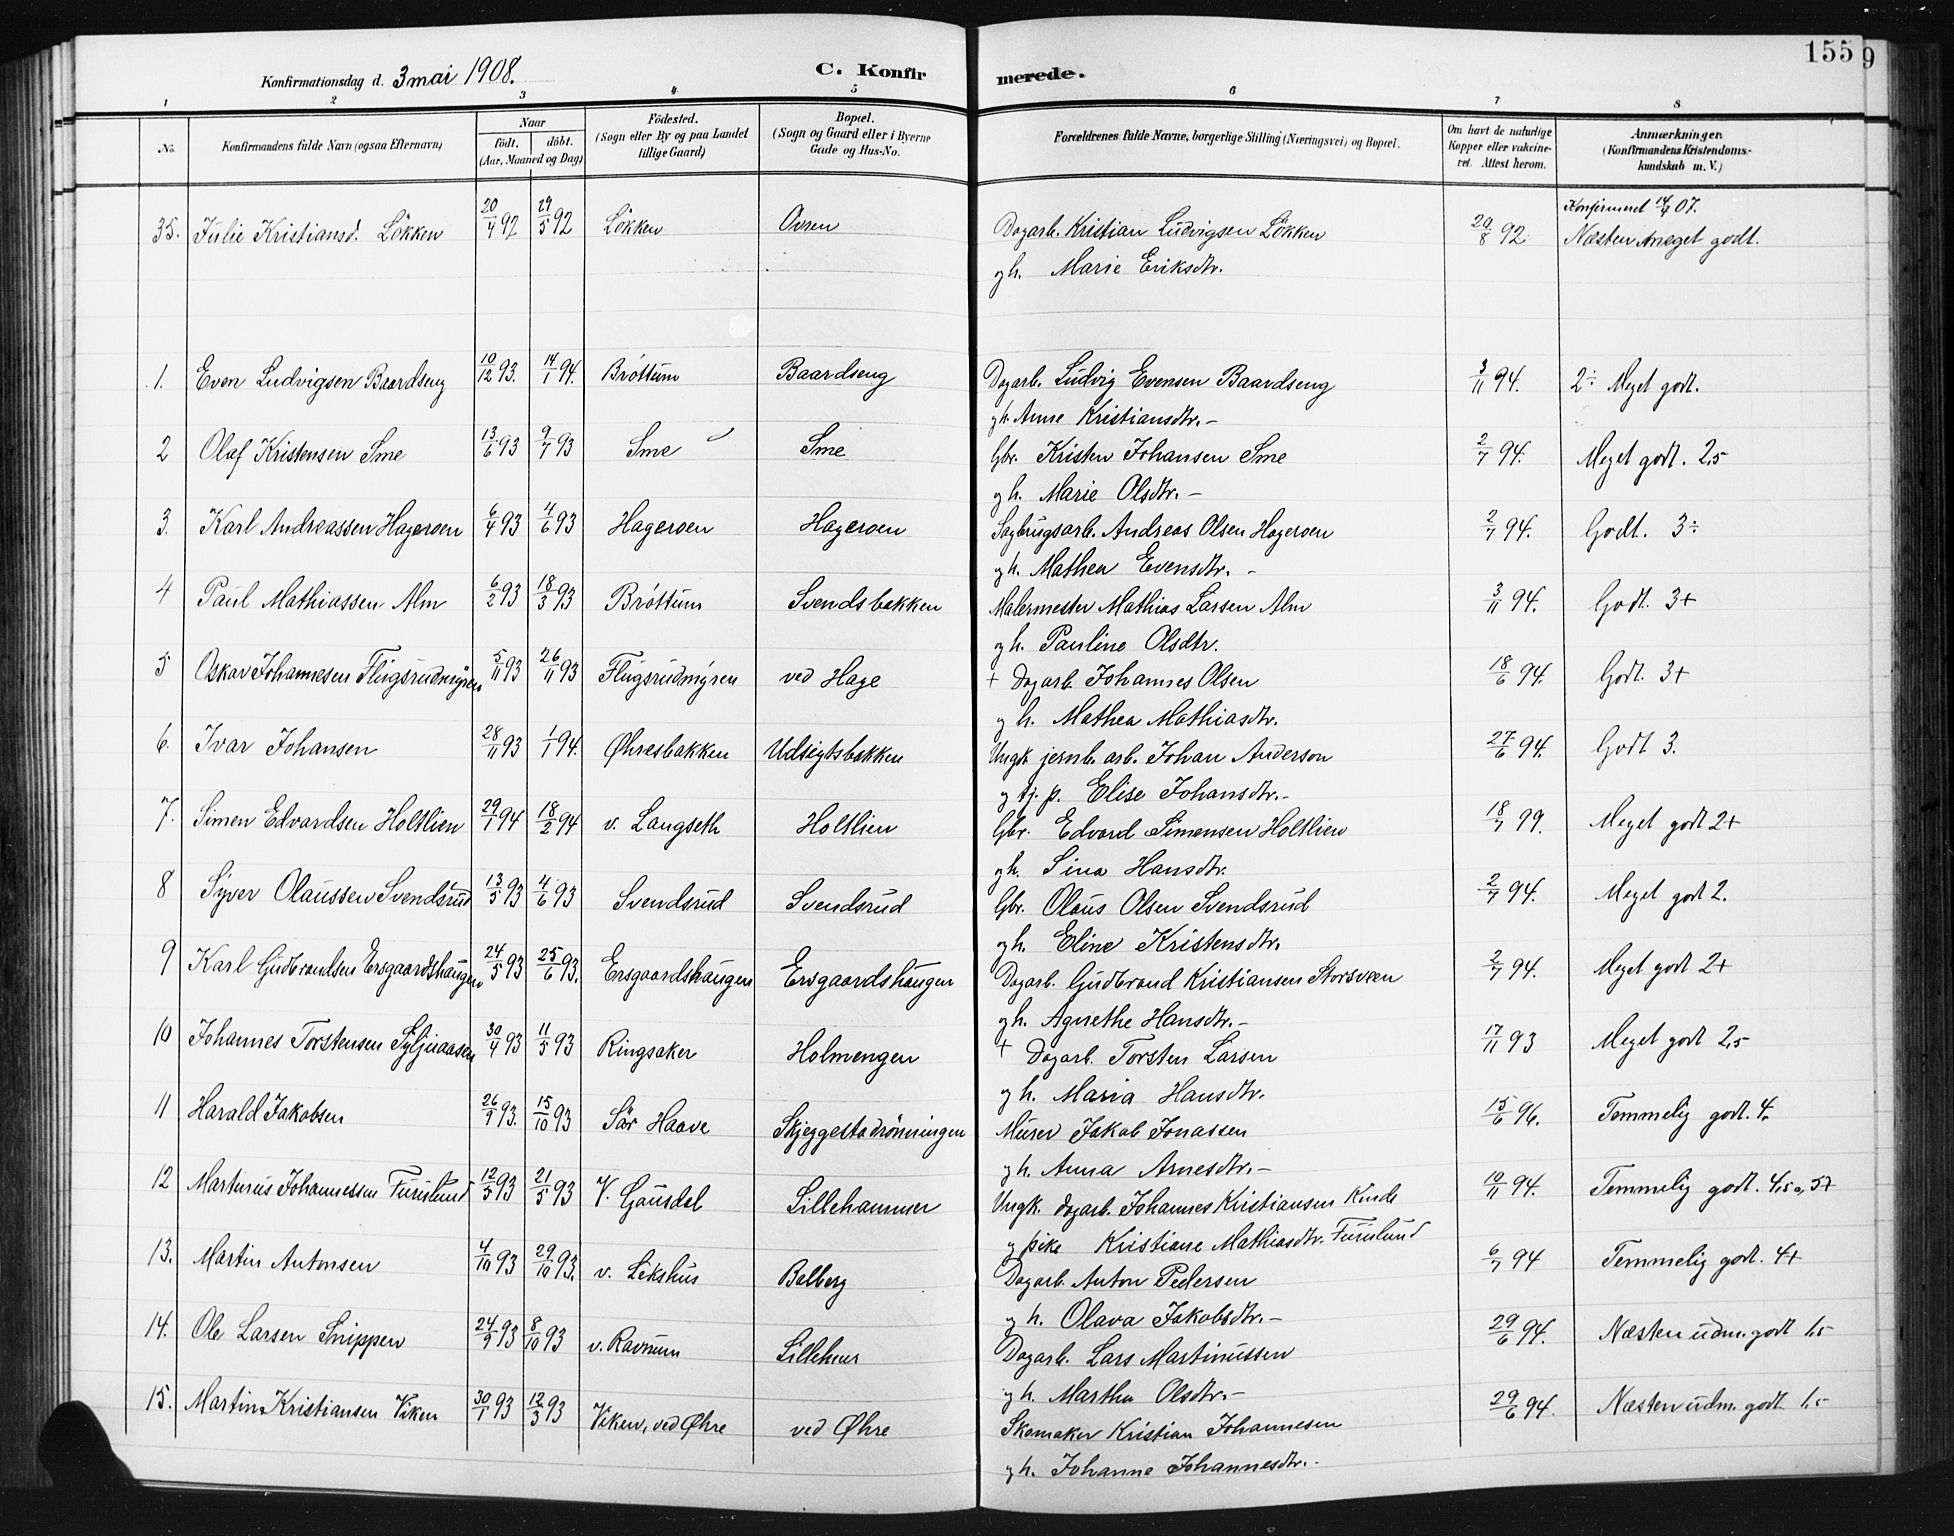 155 9
Konfirmationsdag d. 3 mai 1908. C. Konfirmerede.
1 2 3 4 5 6 7 8
No. Konfirmandens fulde Navn (ogsaa Efternavn) Naar født. døbt. (Aar, Maaned og Dag) Födested. (Sogn eller By og paa Landet tillige Gaard) Bopæl. (Sogn og Gaard eller i Byerne Gade og Hus-No. Forældrenes fulde Navne, borgerlige Stilling (Næringsvei) og Bopæl. Om havt de naturlige Kopper eller vakcineret. Attest herom. Anmærkninger. (Konfirmandens Kristendomskundskab m. V.)
Konfirmeret 14/4 07.
35. Julie Kristiansd. Lökken 20/4 92 29/5 92 Lökken Ovren Dagarb. Kristian Ludvigsen Lökken 29/8 92 Næsten meget godt.
g h. Marie Eriksdtr.
1. Even Ludvigsen Baardseng 10/12 93. 14/1 94. Bröttum Baardseng Dagarb. Ludvig Evensen Baardseng 3/11 94. 2÷ Meget godt.
g h. Anne Kristiansdtr. –
2 Olaf Kristensen Sme 13/6 93 9/7 93 Sme Sme Gbr. Kristen Johansen Sme 2/7 94. Meget godt. 2,5
g h. Marie Olsdtr. –
3. Karl Andreassen Hageroen 6/4 93 4/6 93 Hageroen Hageroen Sagbrugsarb. Andreas Olsen Hageroen 2/7 94. Godt. 3÷
g h. Mathea Evensdtr. –
4 Paul Mathiassen Alm 6/2 93 18/3 93 Bröttum Svendsbakken Malermester Mathias Larsen Alm 3/11 94. Godt. 3+
g h. Pauline Olsdtr.
5 Oskar Johannesen Flugsrudmyren 5/11 93 26/11 93 Flugsrudmyren ved Hage + Dagarb. Johannes Olsen 18/6 94. Godt. 3+
g h. Mathea Mathiasdtr.
6. Ivar Johansen 28/11 93 1/1 94. Øhresbakken Udsigtsbakken Ungk. jernb. arb. Johan Anderson 27/6 94. Godt 3.
g tj. p. Elise Johansdtr. –
7. Simen Edvardsen Holtlien 29/1 94 18/2 94 v. Langseth Holtlien Gbr. Edvard Simensen Holtlien 18/7 99. Meget godt 2+
g h. Sina Hansdtr.
8 Syver Olaussen Svendsrud 13/5 93 4/6 93 Svendsrud Svendsrud Gbr. Olaus Olsen Svendsrud 2/7 94. Meget godt 2.
g h. Eline Kristensdtr.
9 Karl Gudbrandsen Ersgaardshaugen 24/5 93 25/6 93. Ersgaardshaugen Ersgaardshaugen Dagarb. Gudbrand Kristiansen Storsveen 2/7 94. Meget godt 2+
g h. Agnethe Hansdtr. –
10 Johannes Torstensen Syljuaasen 30/4 93 11/5 93 Ringsaker Holmengen + Dagarb. Torsten Larsen 17/11 93 Meget godt 2,5
g h. Maria Hansdtr.
11 Harald Jakobsen 26/9 93. 15/10 93 Sör Haave Skjeggestadrönningen Murer Jakob Jonassen 15/6 96. Temmelig godt. 4.
g h. Anna Arnesdtr. –
12 Martinus Johannessen Furulund 12/5 93 21/5 93 V. Gausdal Lillehammer Ungk. dagarb. Johannes Kristiansen Kinde 10/11 94. Temmelig godt. 4,5 a, 5+
g pike Kristiane Mathiasdtr. Furulund
13. Martin Antonsen 4/10 93 29/10 93. v. Lökshus Balberg Dagarb. Anton Pedersen 6/7 94 Temmelig godt. 4+
g h. Olava Jakobsdtr. –
14. Ole Larsen Snippen 24/9 93 8/10 93 v. Ravnum Lillehmr Dagarb. Lars Martinussen 29/6 94. Næsten udm. godt 1,5
g h. Martha Olsdtr. –
15. Martin Kristiansen Viken 30/1 93 12/3 93 Viken, ved Øhre ved Øhre Skomaker Kristian Johannesen 29/6 94. Næsten udm. godt. 1,5
g h. Johanne Johannesdtr. –